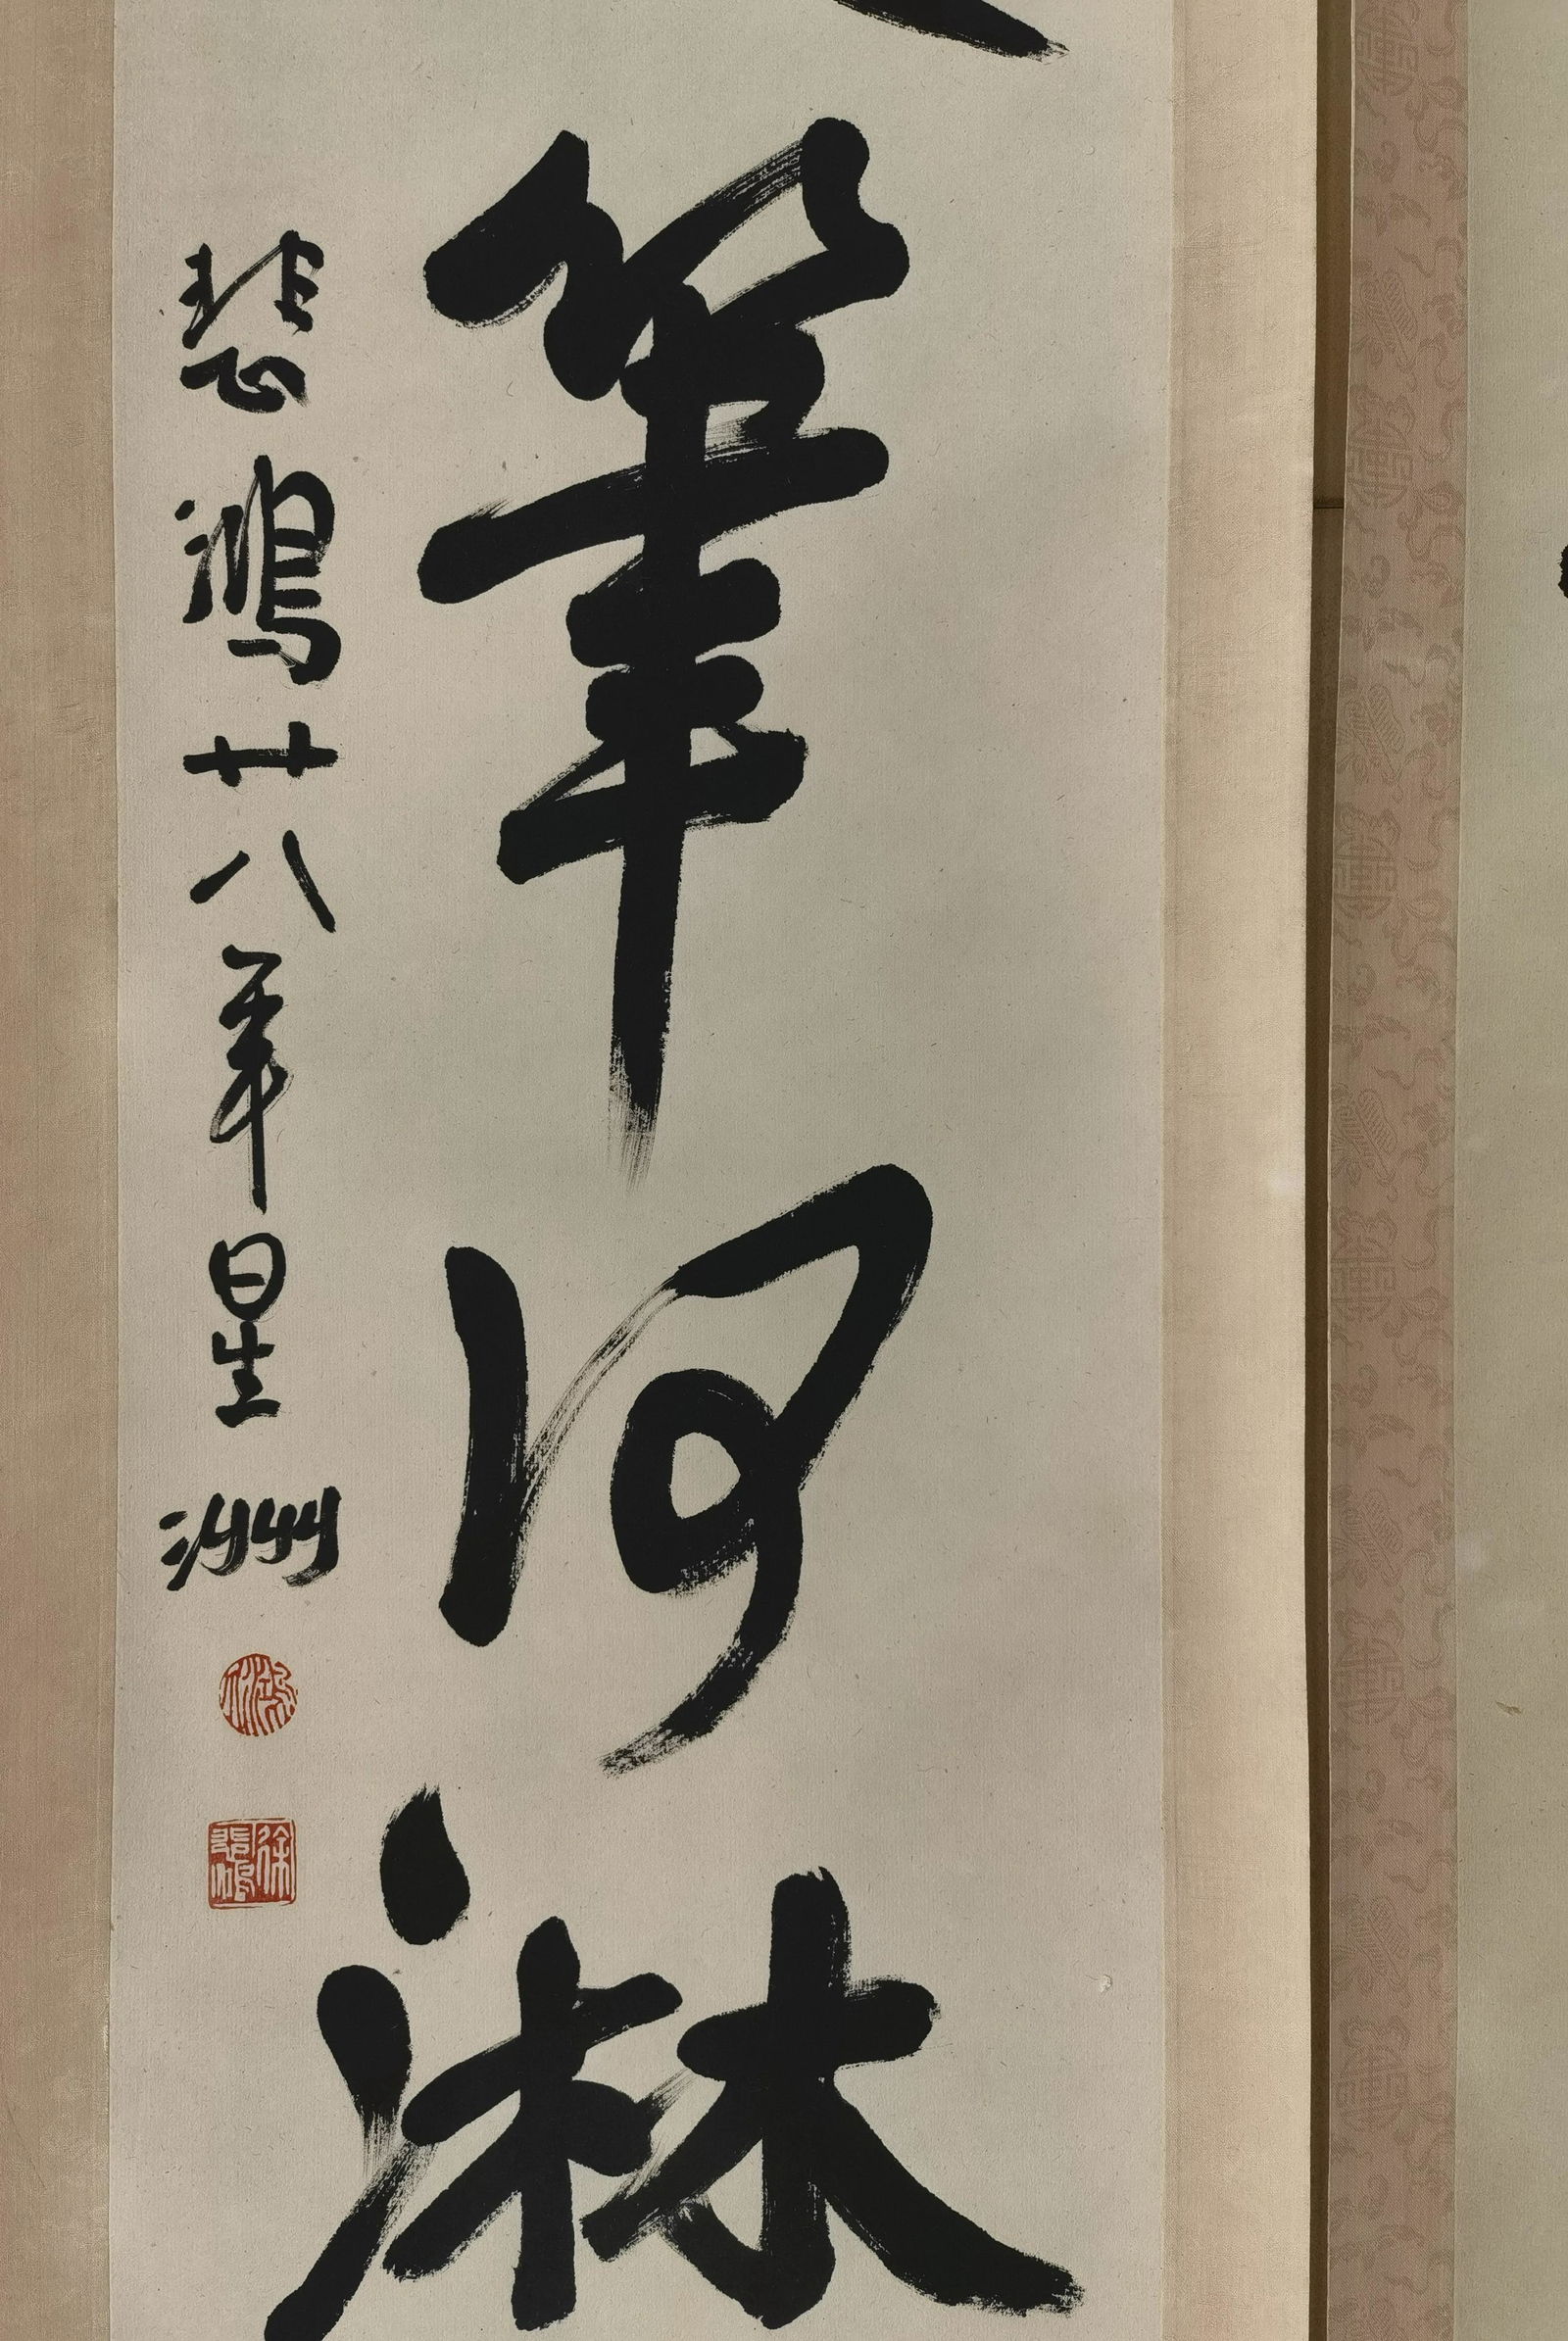 筆何淋
悲鴻廿八年星洲
徐悲鴻